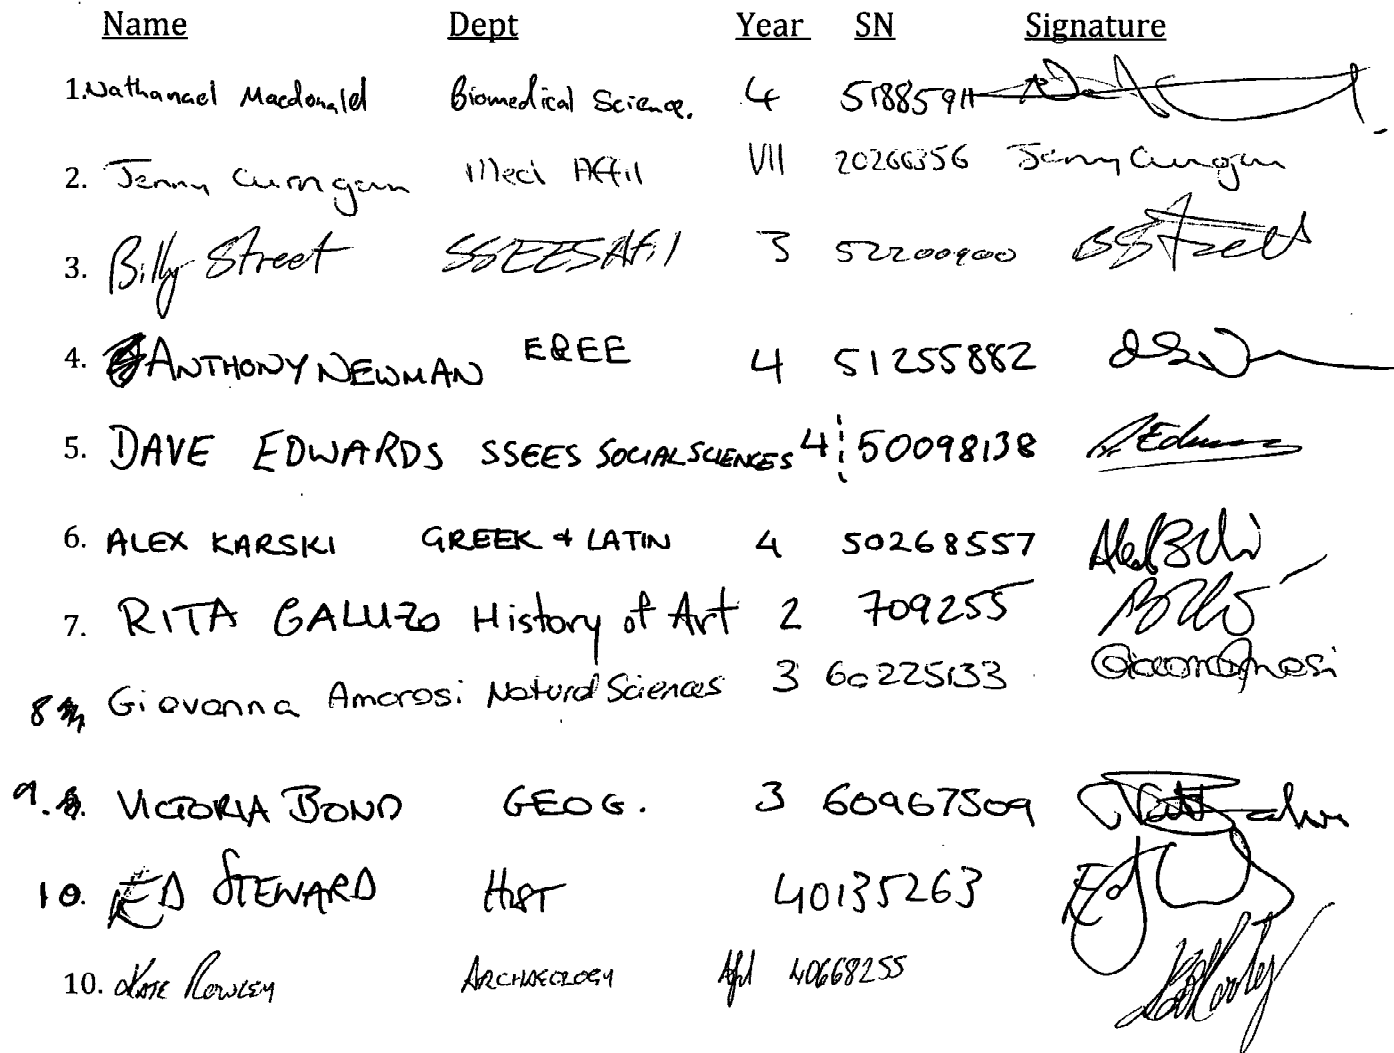 Name Dept Year SN Signature
1. Nathanael Macdonald Biomedical Science. 4 5188591
2. Jenny Med Affil VII 20266356 Jenny
3. Billy Street SSEES Afil 3 52200900 BStreet
4. ANTHONY NEWMAN EEE 4 51255882
5. DAVE EDWARDS SSEES SOCIAL SCIENCES 4 50098138
6. ALEX KARSKI GREEK + LATIN 4 50268557
7. RITA GALUZO History of Art 2 709255
8 Giovanna Amorosi Natural Sciences 3 60225133
9. VICTORIA BOND GEOG. 3 60967509
10. ED STEWARD HIST 40135263 Ed
10. Kate Rowley ARCHAEOLOGY Afil 40668255